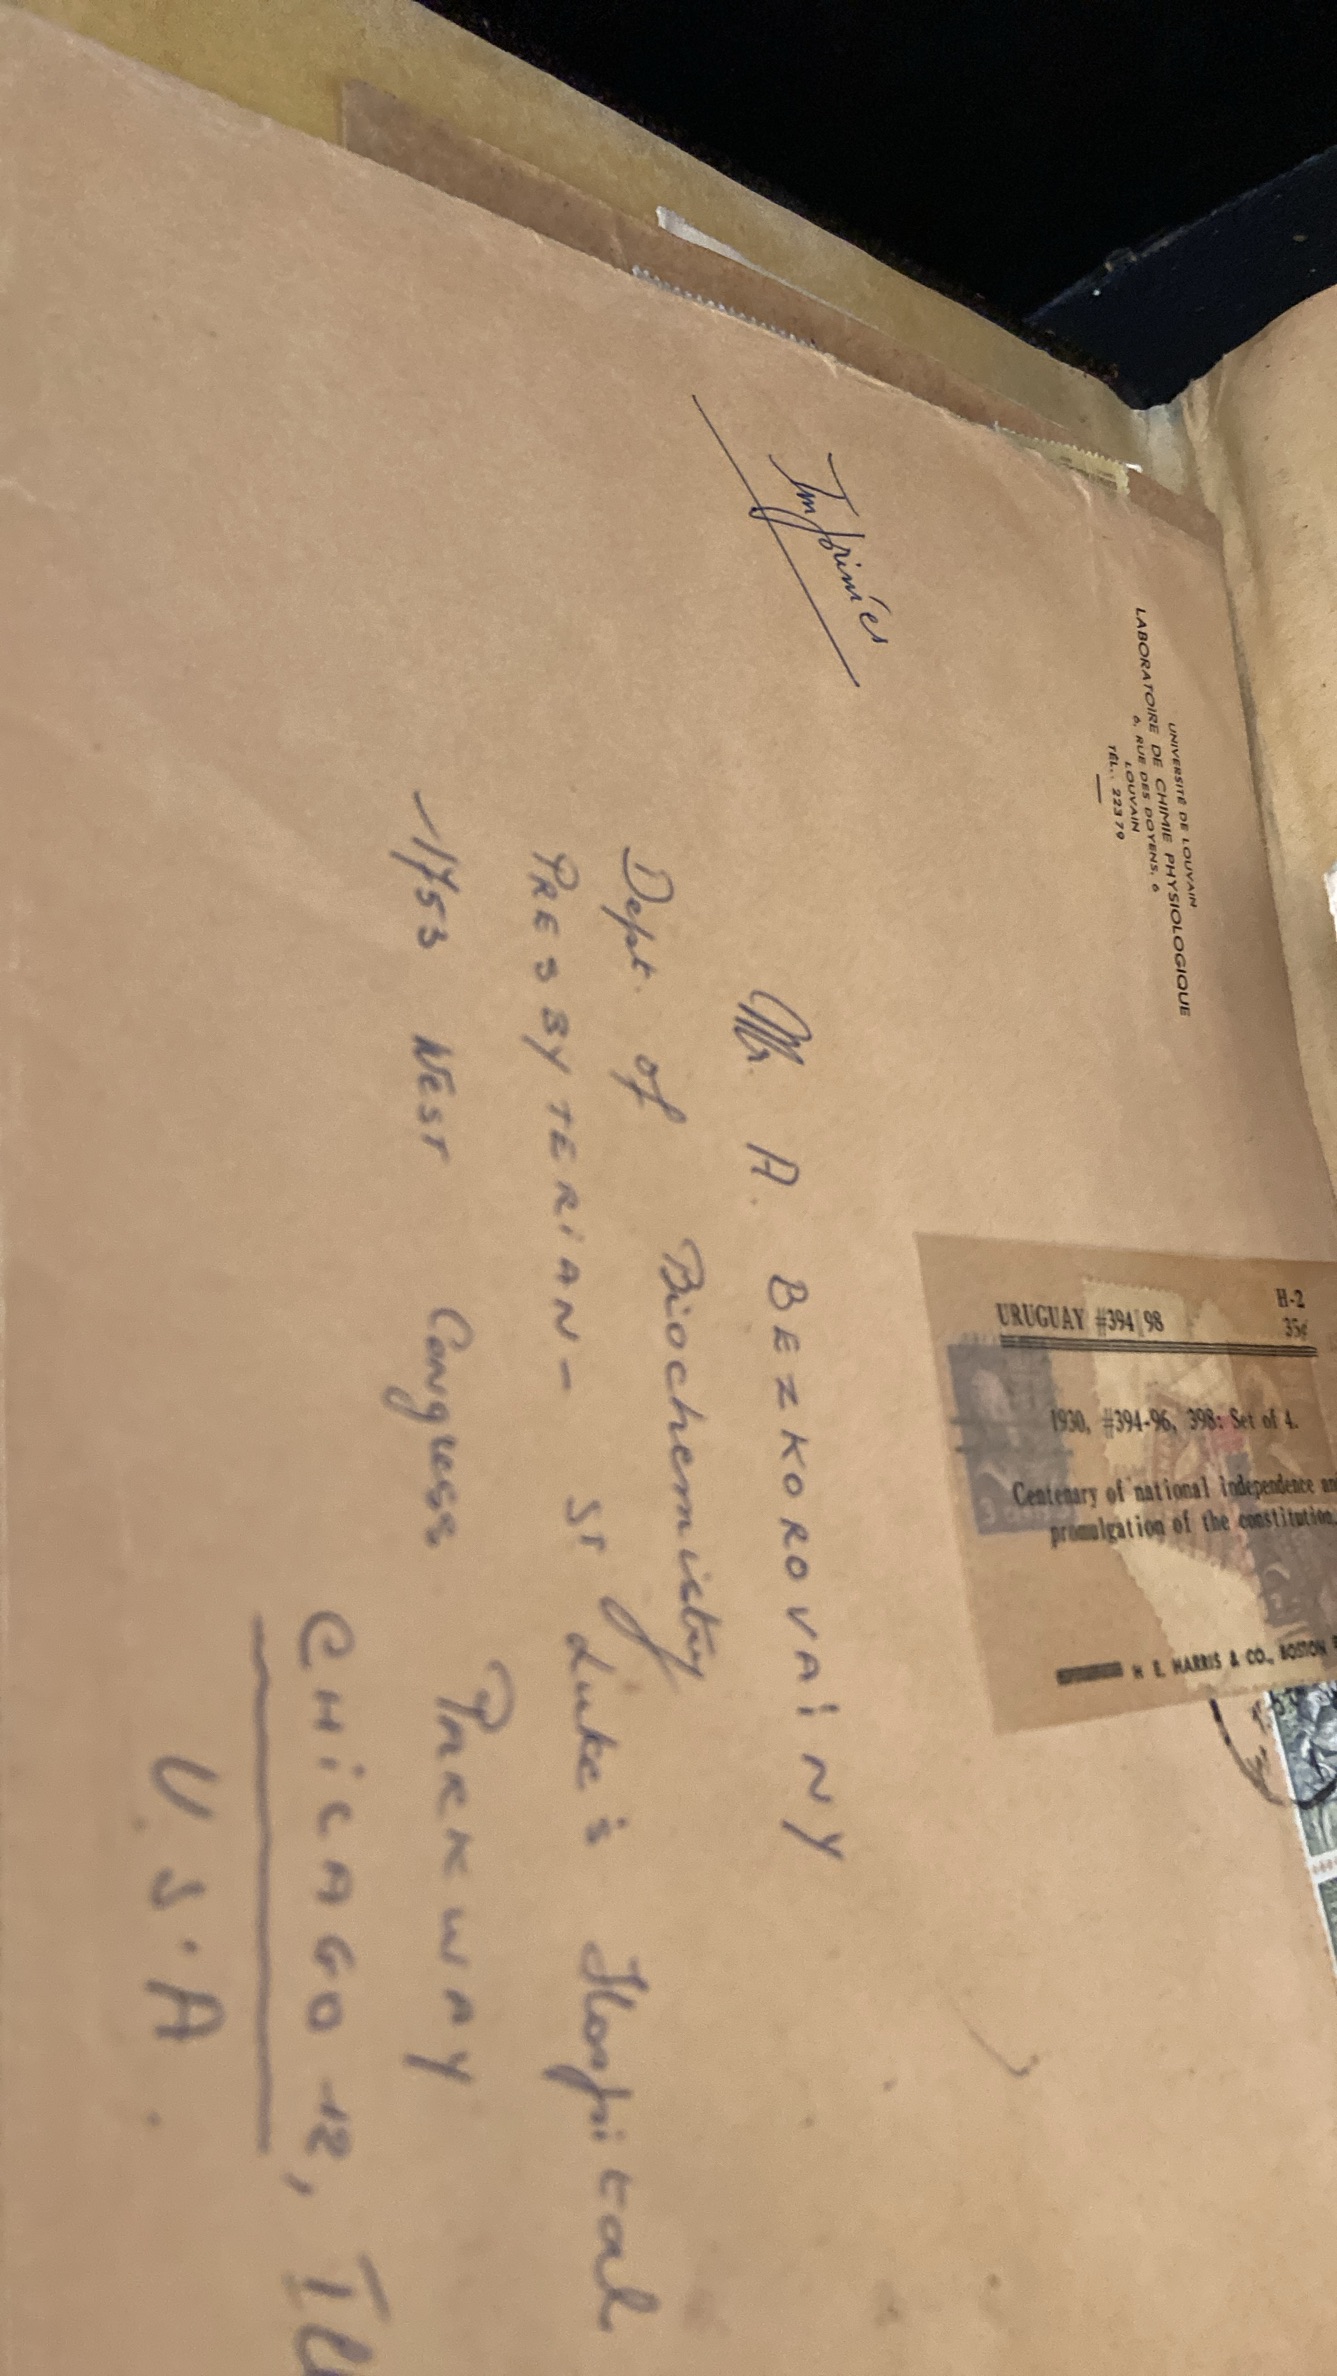 UNIVERSITÉ DE LOUVAIN
LABORATOIRE DE CHIMIE PHYSIOLOGIQUE
6, RUE DES DOYENS, 6
LOUVAIN
TÉL.: 22379
Imprimés
Mr. A. BEZKOROVAiNY
Dept. of Biochemistry
PRESBYTERiAN - ST Luke's Hospital
1753 WEST Congress PARKWAY
CHiCAGO 12, Ill
U.S.A.
H-2
URUGUAY #394 98 35¢
1930, #394-96, 398: Set of 4.
Centenary of national independence and
promulgation of the constitution.
H. E. HARRIS & CO., BOSTON